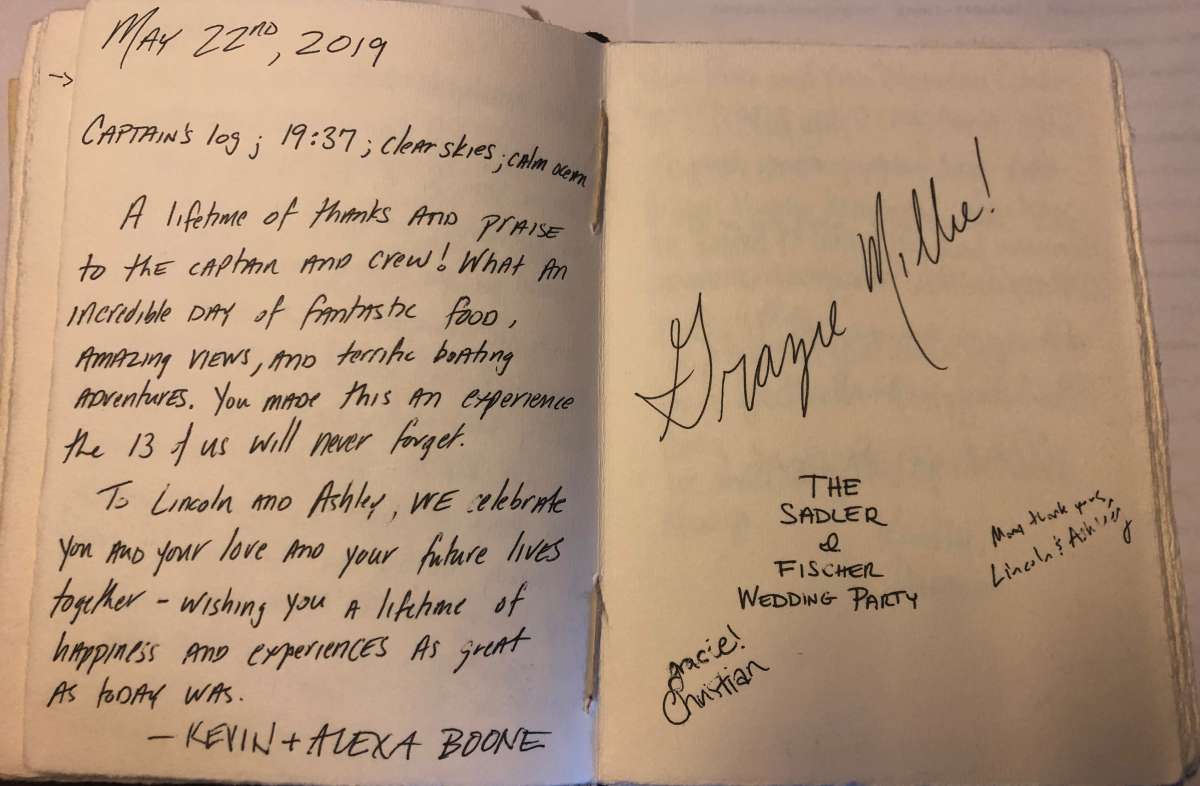 MAY 22ND, 2019
→
CAPTAIN'S log; 19:37; clear skies; calm ocean
A lifetime of thanks AND PRAISE
to the CAPTAIN AND crew! What AN
incredible DAY of fantastic food,
AMAZING VIEWS, AND terrific boating
ADVENTURES. You MADE this AN experience
the 13 of us will never forget.
To Lincoln AND Ashley, WE celebrate
you AND your love AND your future lives
together - wishing you A lifetime of
happiness AND experiences AS great
AS toDAY WAS.
- KEVIN + ALEXA BOONE
Grazie Millie!
THE
SADLER
&
FISCHER
WEDDING PARTY
Many thank yous,
Lincoln & Ashley
gracie!
Christian